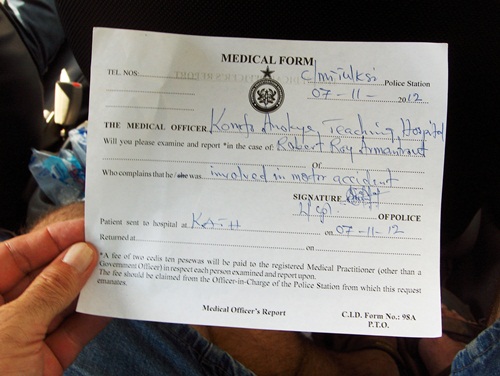 MEDICAL FORM
TEL. NOS:
Police Station
07-11- 2012
THE MEDICAL OFFICER, Komfo Anokye Teaching Hospital
Will you please examine and report *in the case of: Robert Roy Armantrout
Or
Who complains that he / she was involved in motor accident
SIGNATURE
OF POLICE
Patient sent to hospital at KATH on 07-11-12
Returned at on
*A fee of two cedis ten pesewas will be paid to the registered Medical Practitioner (other than a
Government Officer) in respect each person examined and report upon.
The fee should be claimed from the Officer-in-Charge of the Police Station from which this request
emanates.
Medical Officer's Report
C.I.D. Form No.: 98A
P.T.O.